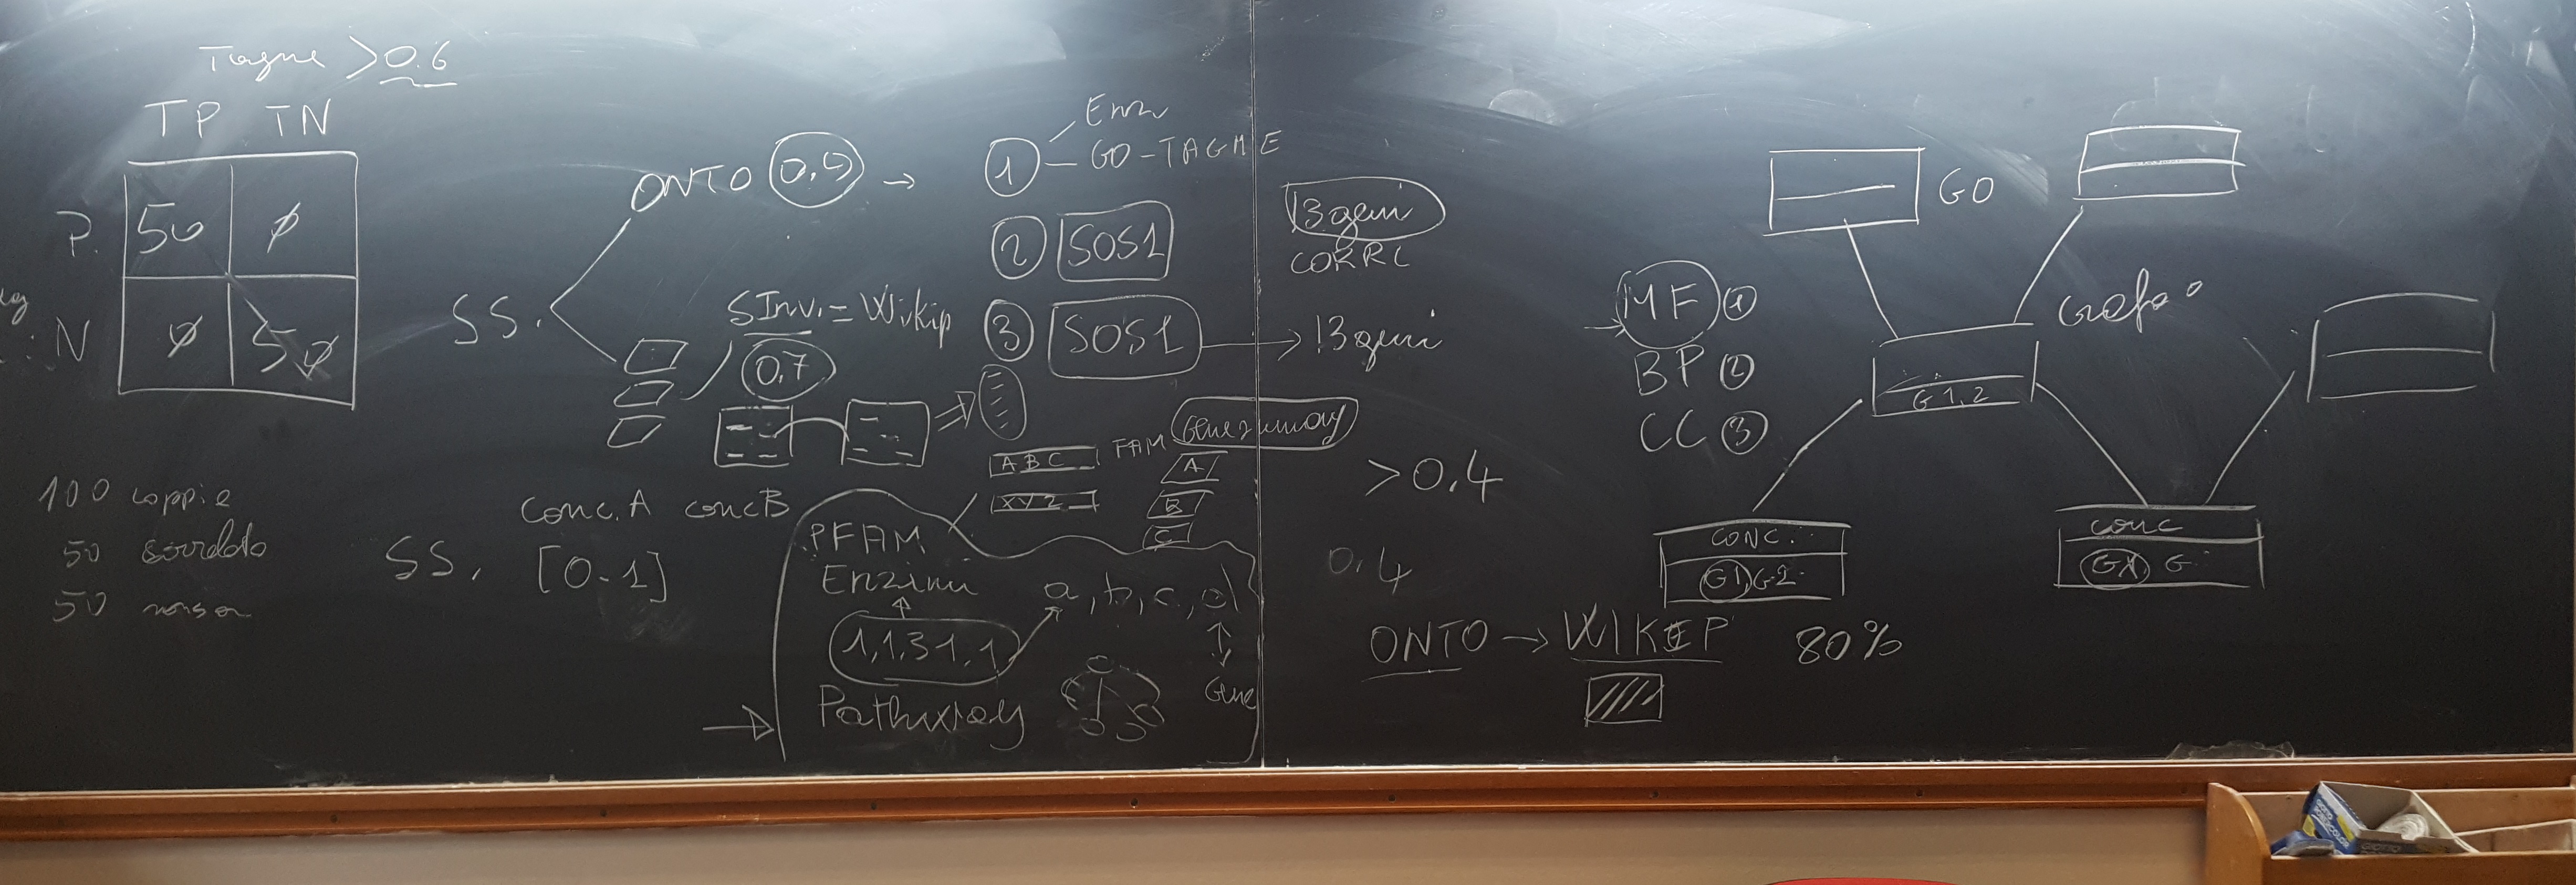 Tagme > 0.6
TP TN
P. 50 ∅
N ∅ 50
100 coppie
50
50
SS.
ONTO →
SInv. = Wikip
0,7
Conc. A conc B
SS. [0-1]
1 GO-TAGME
2 SOS1
3 SOS1 → 13 geni
13 geni
CORREL
ABC FAM Gene summary
XYZ
A
B
C
PFAM
Enzimi
1,1,31,1
a, b, c, d
Gene
Pathway
> 0.4
0.4
ONTO → WIKIP 80%
MF 1
BP 2
CC 3
GO
Grafo
G1,2
CONC.
G1, G2
conc
GX, G
GIOTTO